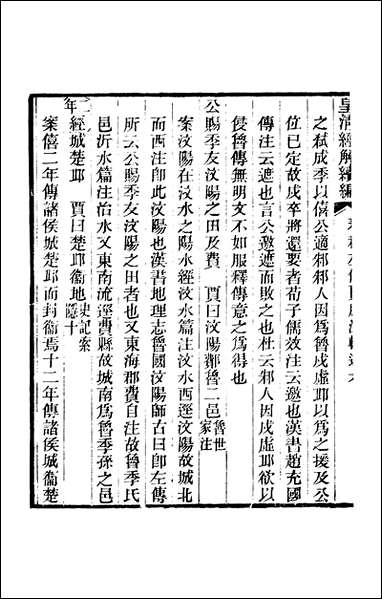 皇淸經解續編
之弑成季以僖公適邾邾人因爲魯戍虛丘以爲之援及公
位已定故戍卒將還要者荀子儒效注云遮也漢書趙充國
傳注云遮也言公邀遮而敗之也杜云邾人因戍虛丘欲以
侵魯傳無明文不如服釋傳意之爲得也
公賜季友汶陽之田及費　賈曰汶陽鄪魯二邑魯世家注
案汶陽在汶水之陽水經汶水篇注汶水西逕汶陽故城北
而西注卽此汶陽也漢書地理志魯國汶陽師古曰卽左傳
所云公賜季友汶陽之田者也又東海郡費自注故魯季氏
邑沂水篇注治水又東南流逕費縣故城南爲魯季孫之邑
二年經城楚丘　賈曰楚丘衞地史記索隱十
案僖二年傳諸侯城楚丘而封衞焉十二年傳諸侯城衞楚